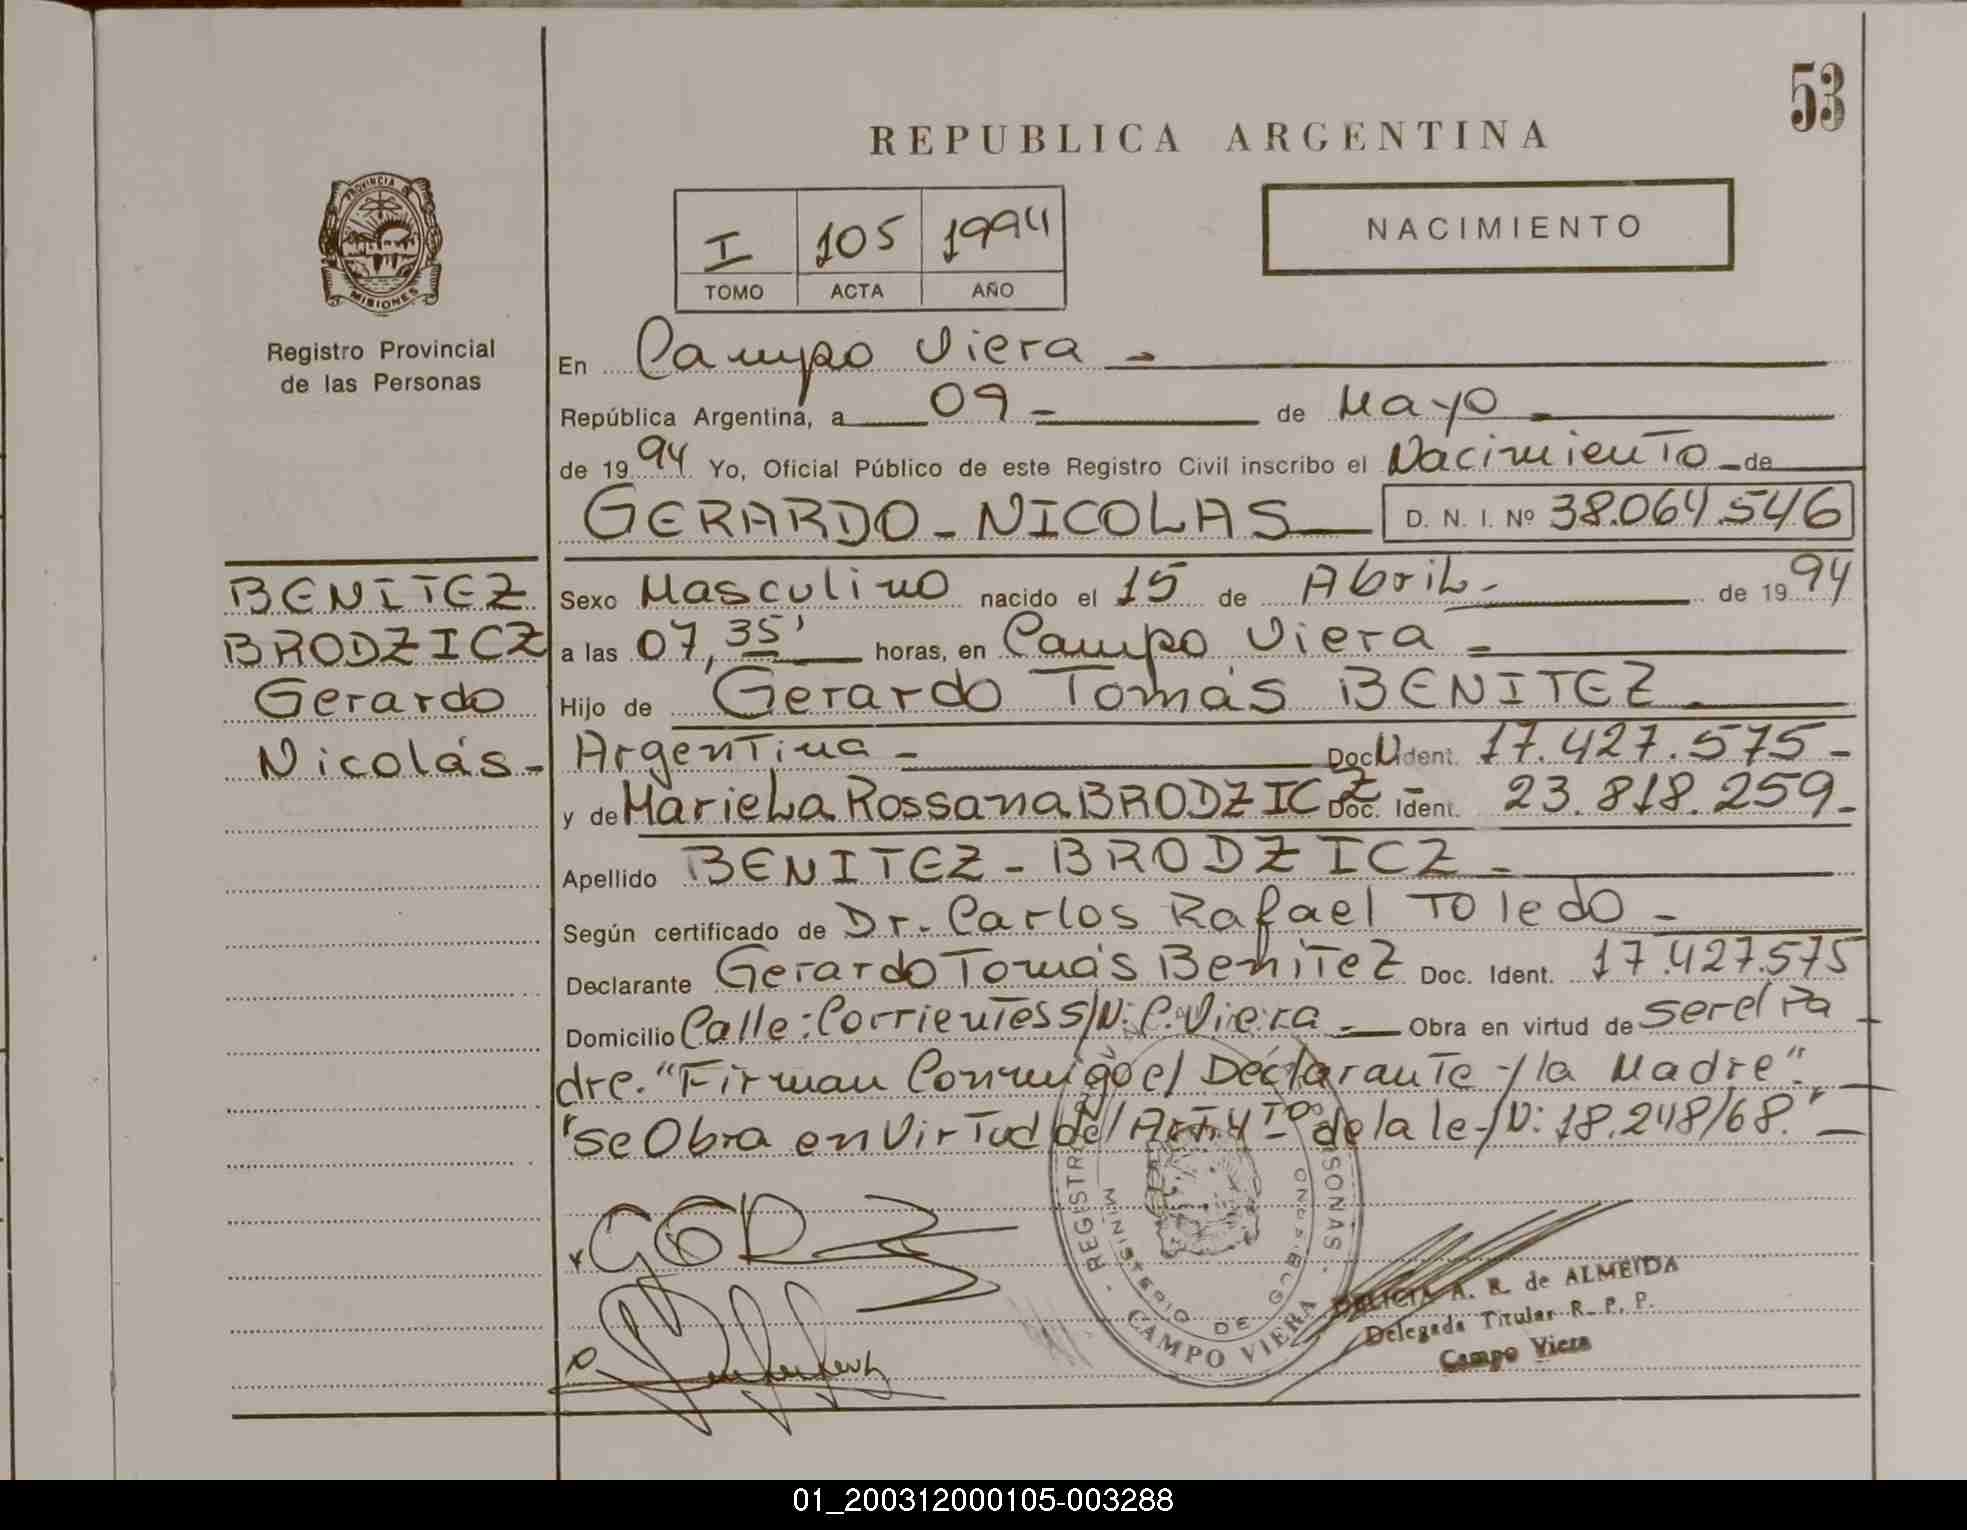 53
REPUBLICA ARGENTINA
PROVINCIA DE
MISIONES
Registro Provincial
de las Personas
I 105 1994
TOMO ACTA AÑO
NACIMIENTO
En Campo Viera -
República Argentina, a 09 - de Mayo -
de 1994 Yo, Oficial Público de este Registro Civil inscribo el Nacimiento - de
GERARDO - NICOLAS D. N. I. Nº 38.064.546
BENITEZ
BRODZICZ
Gerardo
Nicolás -
Sexo Masculino nacido el 15 de Abril - de 1994
a las 07,35' horas, en Campo Viera -
Hijo de Gerardo Tomás BENITEZ
Argentina - Doc. Ident. 17.427.575 -
y de Mariela Rossana BRODZICZ Doc. Ident. 23.818.259 -
Apellido BENITEZ - BRODZICZ -
Según certificado de Dr. Carlos Rafael Toledo -
Declarante Gerardo Tomás Benitez Doc. Ident. 17.427.575
Domicilio Calle: Corrientes S/N: C. Viera - Obra en virtud de ser el Pa
dre. "Firman Conmigo el Declarante y la Madre".
"Se Obra en Virtud del Art. 4to de la ley N: 18.248/68."
REGISTRO PERSONAS
MINISTERIO DE GOBIERNO
CAMPO VIERA
DELICIA A. R. de ALMEIDA
Delegada Titular R. P. P.
Campo Viera
01_200312000105-003288